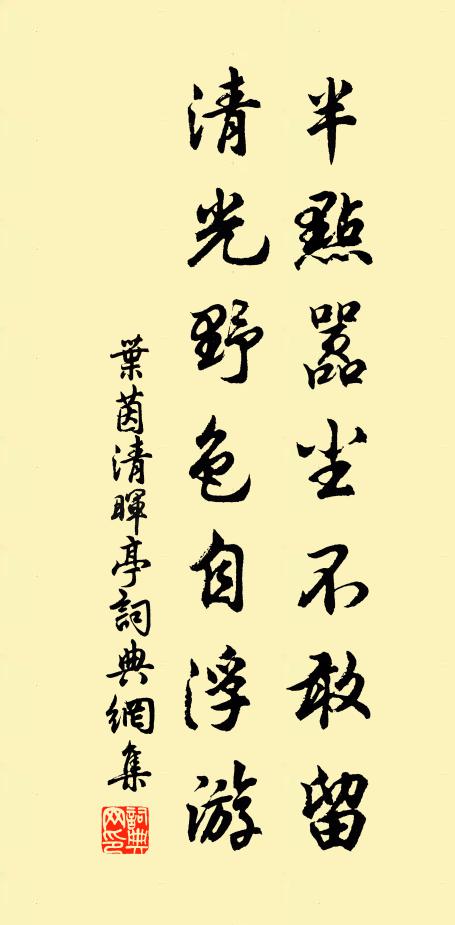 半點嚣尘不敢留
清光野色自浮游
葉茵清暉亭詞典網集
詞典网印